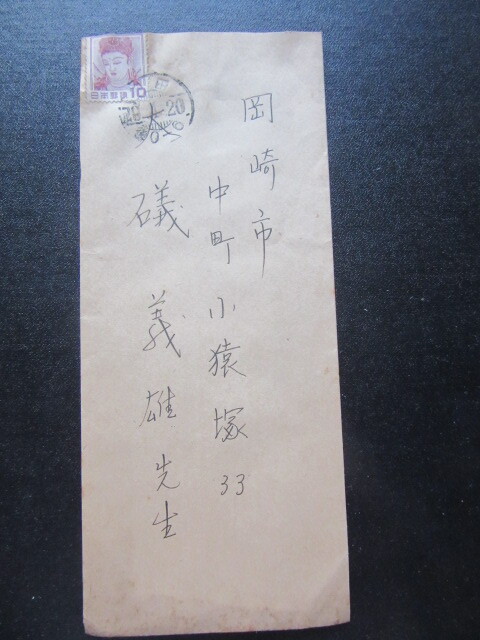 岡崎市
中町小猿塚33
礒義雄先生
日本郵便 10
20